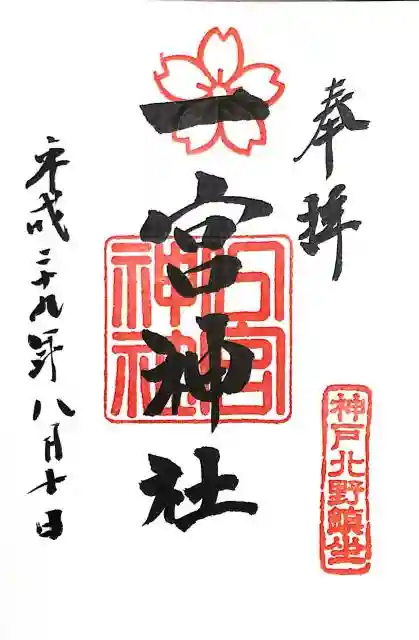 奉拝
神戸北野鎮坐
一宮神社
一宮神社
平成二十九年八月十日